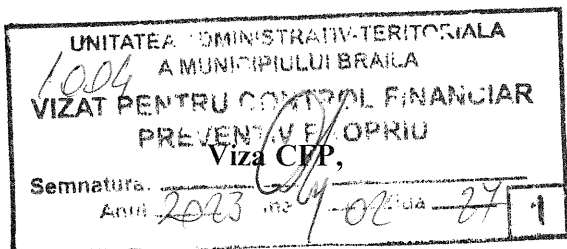 UNITATEA ADMINISTRATIV-TERITORIALA
1004 A MUNICIPIULUI BRAILA
VIZAT PENTRU CONTROL FINANCIAR
PREVENTIV PROPRIU
Viza CFP,
Semnatura.
Anul 2023 02 ziua 27 1